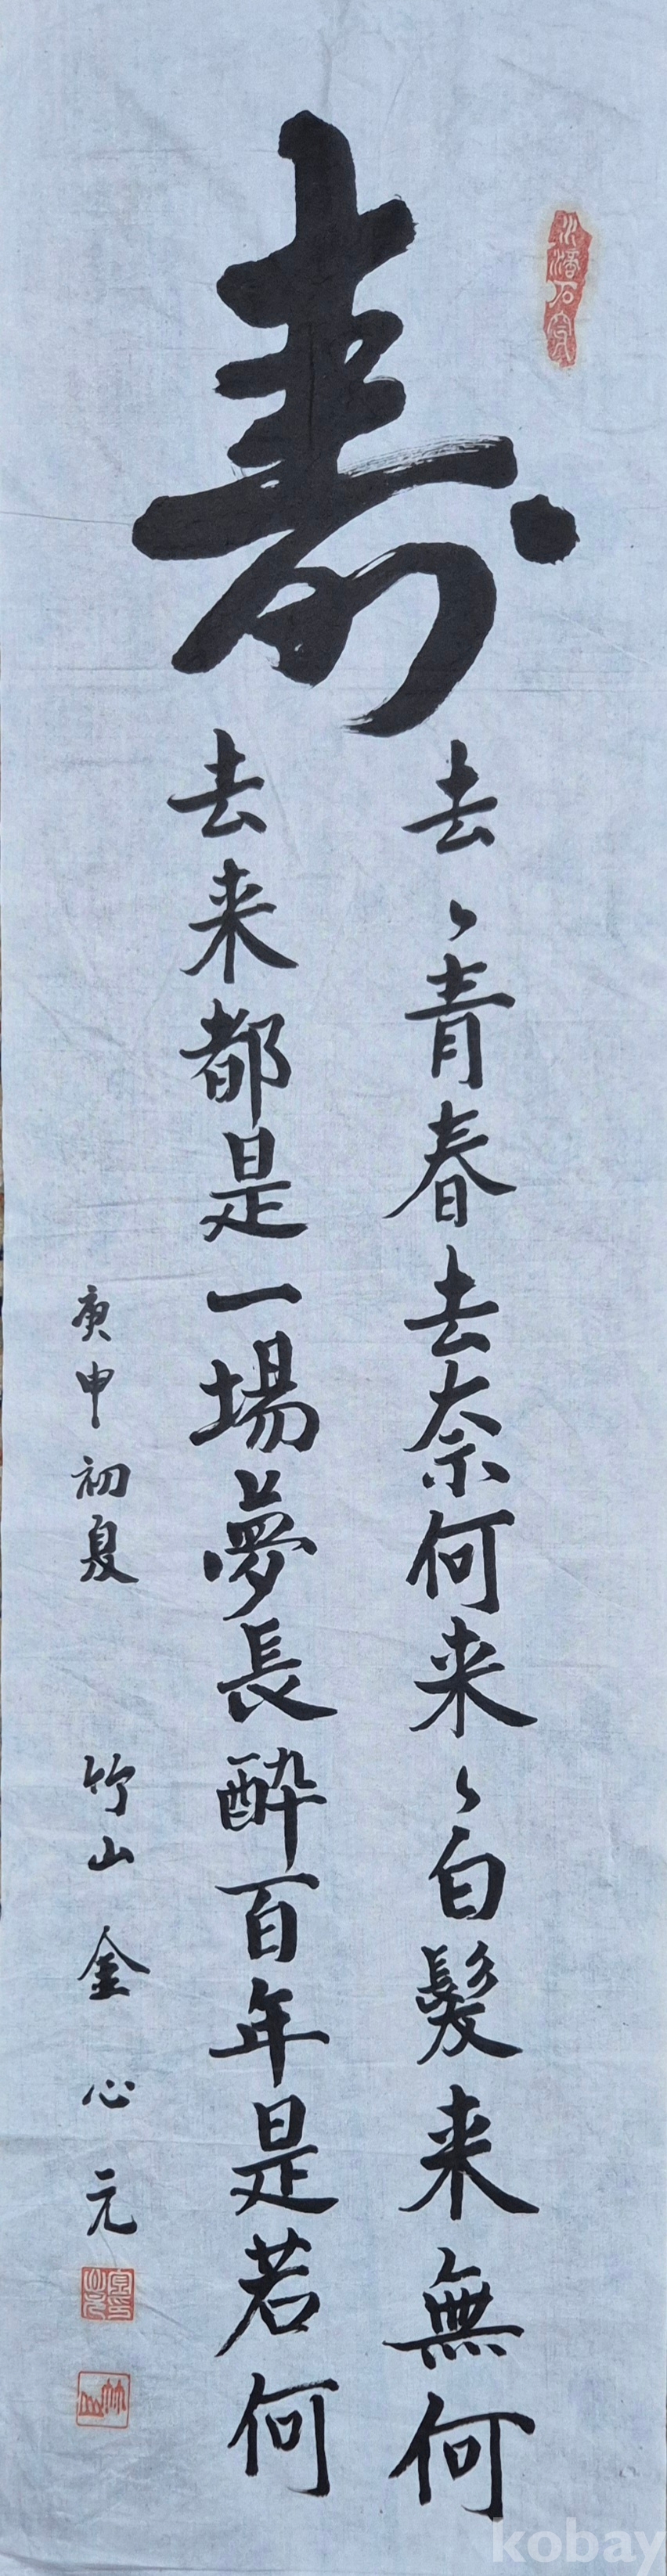 壽
去〻青春去奈何来〻白髮来無何
去来都是一場夢長醉百年是若何
庚申初夏 竹山 金心元
kobay